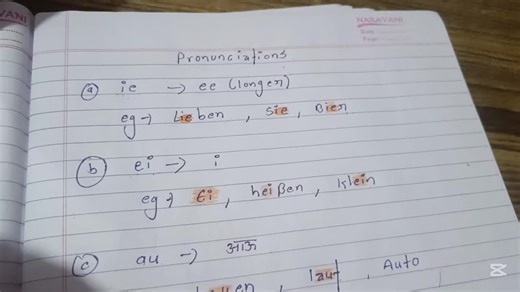 NARAVANI
Pronunciations
(a) ie → ee (longer)
eg → Lieben, Sie, Bier
(b) ei → i
eg → Ei, heißen, Klein
(c) au → आऊ
lauf, Auto